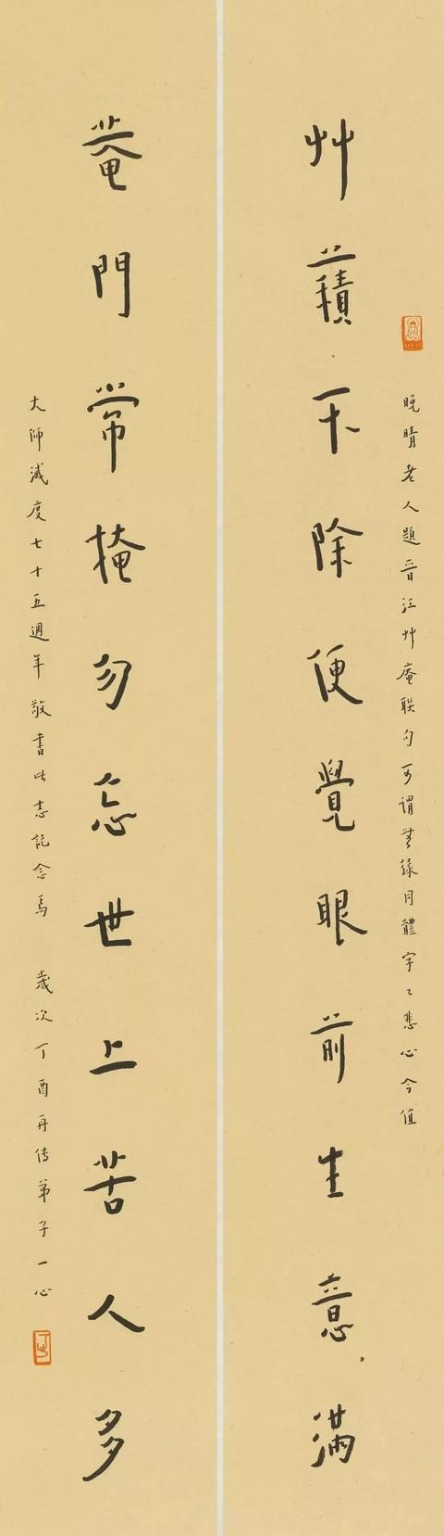 晚晴老人題晉江艸庵聯句可謂無緣同體字々悲心今值
艸𧂐不除便覺眼前生意滿
菴門常掩勿忘世上苦人多
大師滅度七十五週年敬書此志記念焉 歲次丁酉再傳弟子一心